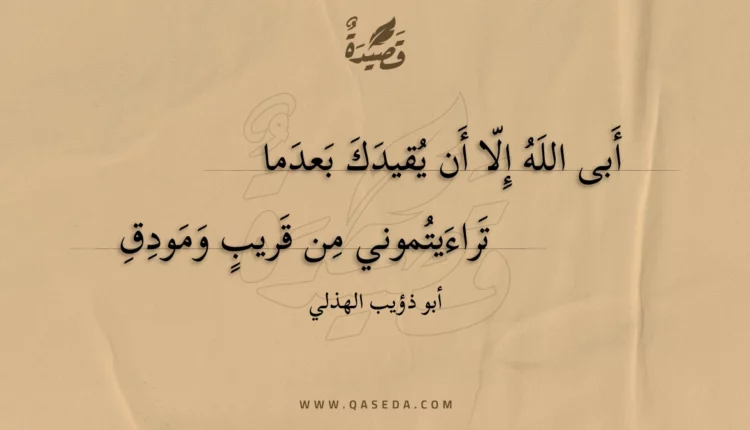 قَصِيْدَةٌ
أَبى اللَهُ إِلّا أَن يُقيدَكَ بَعدَما
تَراءَيتُموني مِن قَريبٍ وَمَودِقِ
أبو ذؤيب الهذلي
WWW.QASEDA.COM